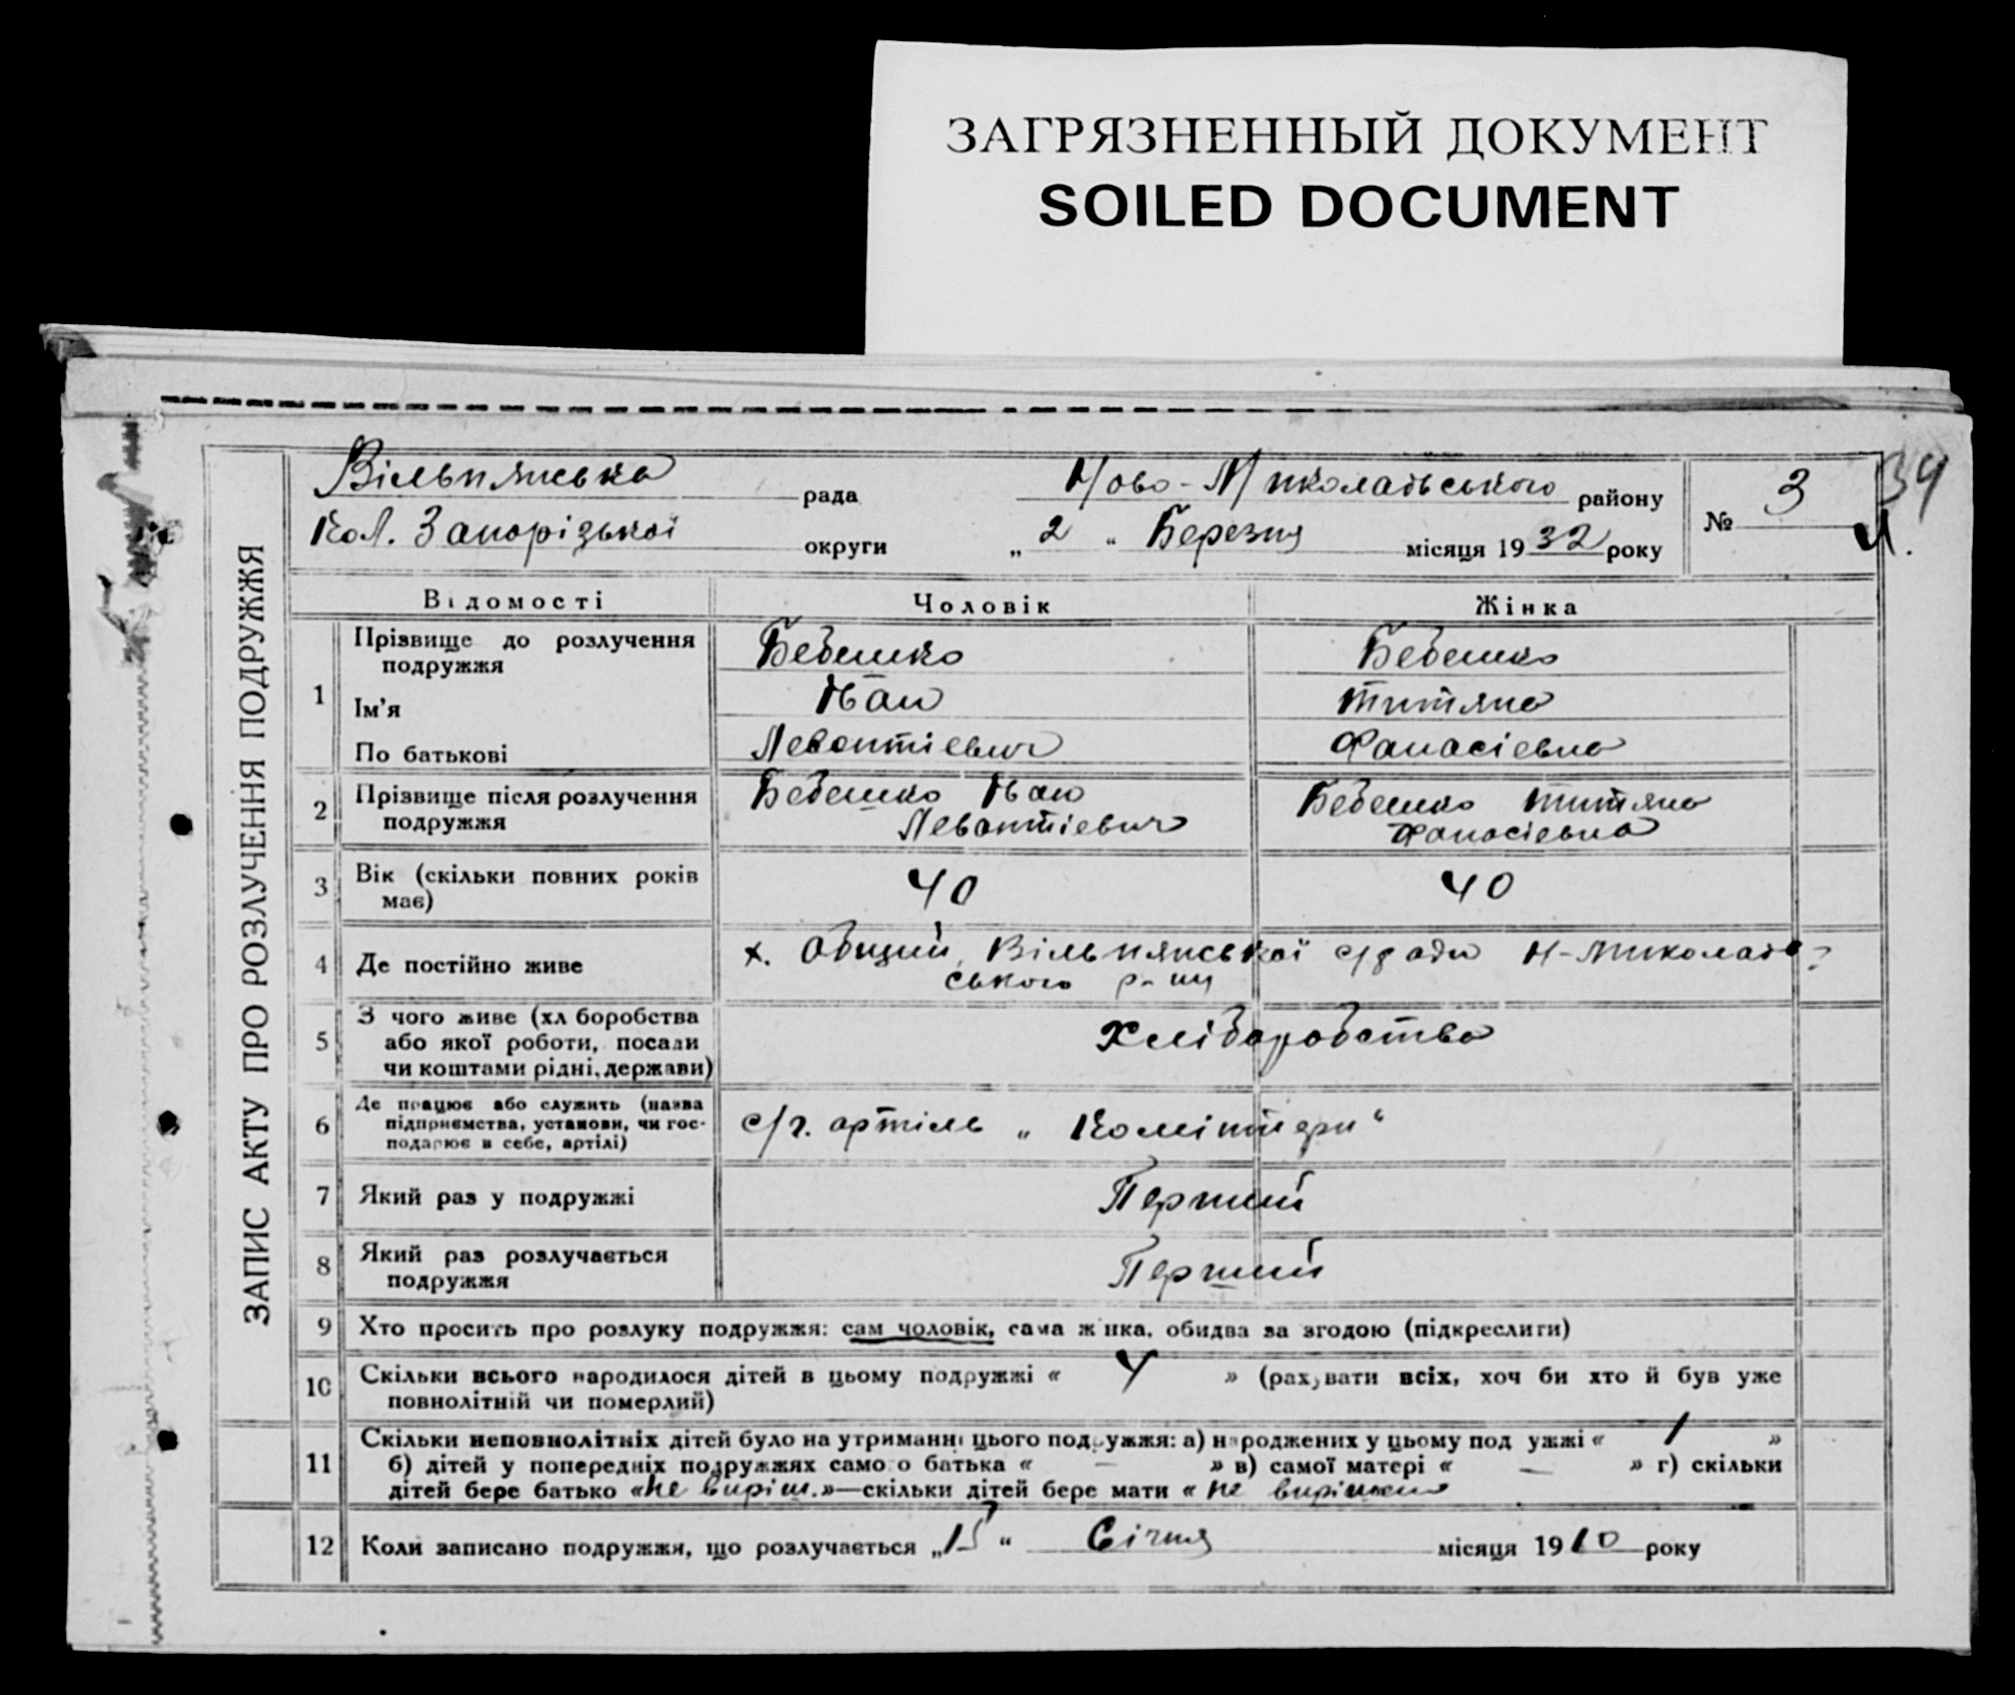 ЗАГРЯЗНЕННЫЙ ДОКУМЕНТ
SOILED DOCUMENT
34
ЗАПИС АКТУ ПРО РОЗЛУЧЕННЯ ПОДРУЖЖЯ
Вільнянська рада Ново-Миколаївського району № 3
Кол. Запорізької округи „ 2 “ Березня місяця 1932 року
Відомості Чоловік Жінка
1 Прізвище до розлучення подружжя Бебешко Бебешко
Ім'я Іван Титяна
По батькові Левонтіевич Фанасіевна
2 Прізвище після розлучення Бебешко Іван Бебешко Титяна
подружжя Левонтіевич Фанасіевна
3 Вік (скільки повних років 40 40
має)
4 Де постійно живе х. Общий, Вільнянської с/ради Н-Миколаїв
ського р-ну
5 З чого живе (хл боробства
або якої роботи, посади Хліборобство
чи коштами рідні, держави)
6 Де працює або служить (назва
підприємства, установи, чи гос- с/г. артіль „ Комінтерн “
подарює в себе, артілі)
7 Який раз у подружжі Перший
8 Який раз розлучається Перший
подружжя
9 Хто просить про розлуку подружжя: сам чоловік, сама ж нка, обидва за згодою (підкреслити)
10 Скільки всього народилося дітей в цьому подружжі « 4 » (рахувати всіх, хоч би хто й був уже
повнолітній чи померлий)
11 Скільки неповнолітніх дітей було на утриманні цього подружжя: а) народжених у цьому под ужжі « 1 »
б) дітей у попередніх подружжях само о батька « — » в) самої матері « — » г) скільки
дітей бере батько «не виріш.»—скільки дітей бере мати « не вирішено
12 Коли записано подружжя, що розлучається „15“ Січня місяця 1910 року